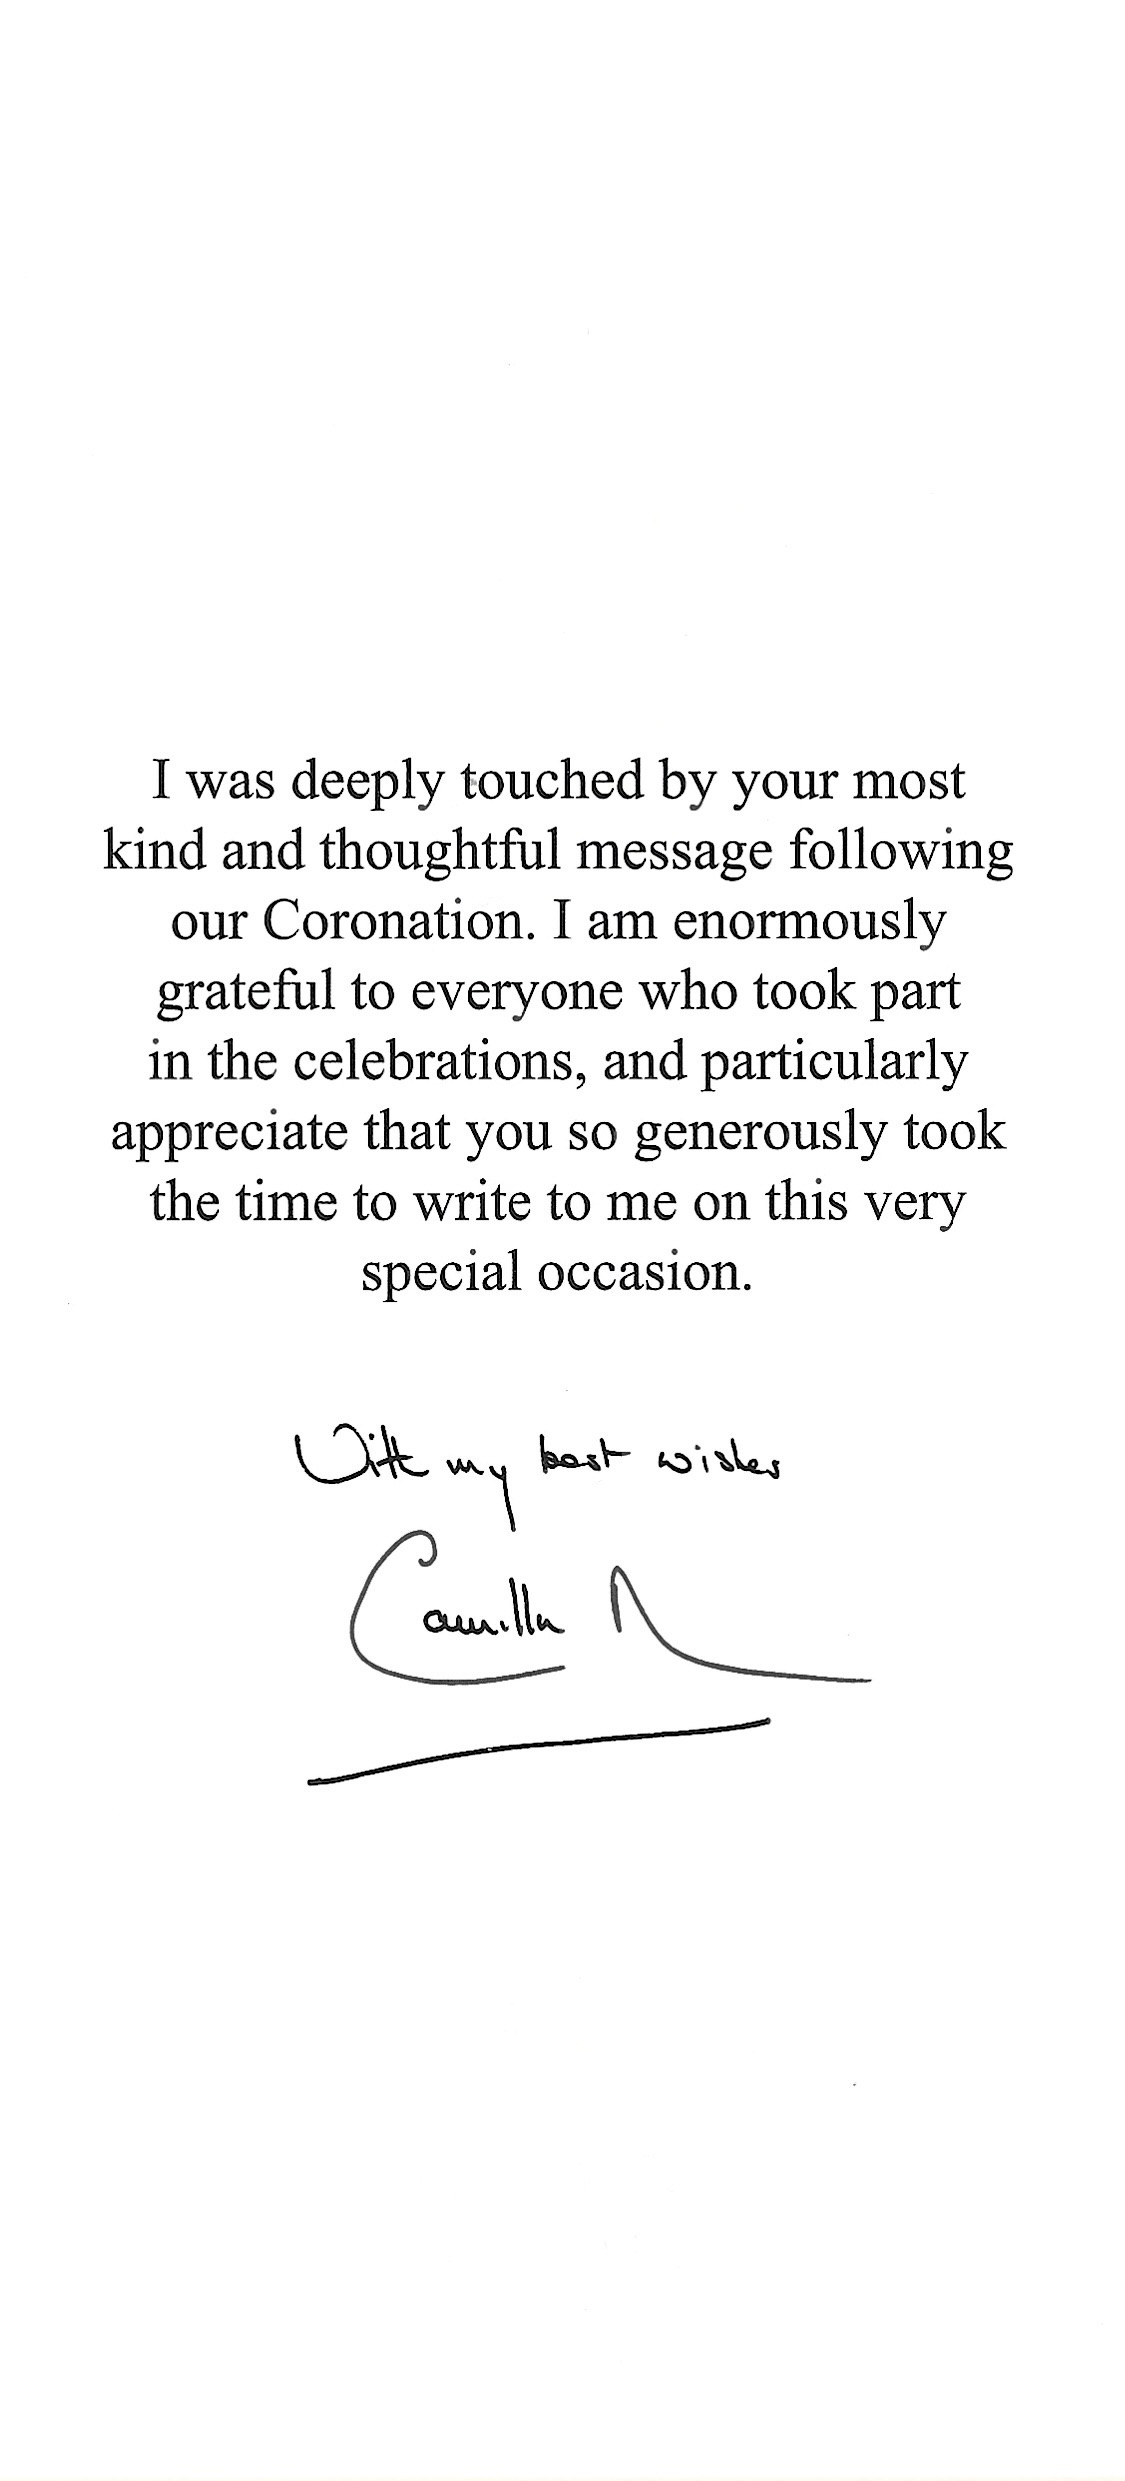 I was deeply touched by your most
kind and thoughtful message following
our Coronation. I am enormously
grateful to everyone who took part
in the celebrations, and particularly
appreciate that you so generously took
the time to write to me on this very
special occasion.
With my best wishes
Camilla R